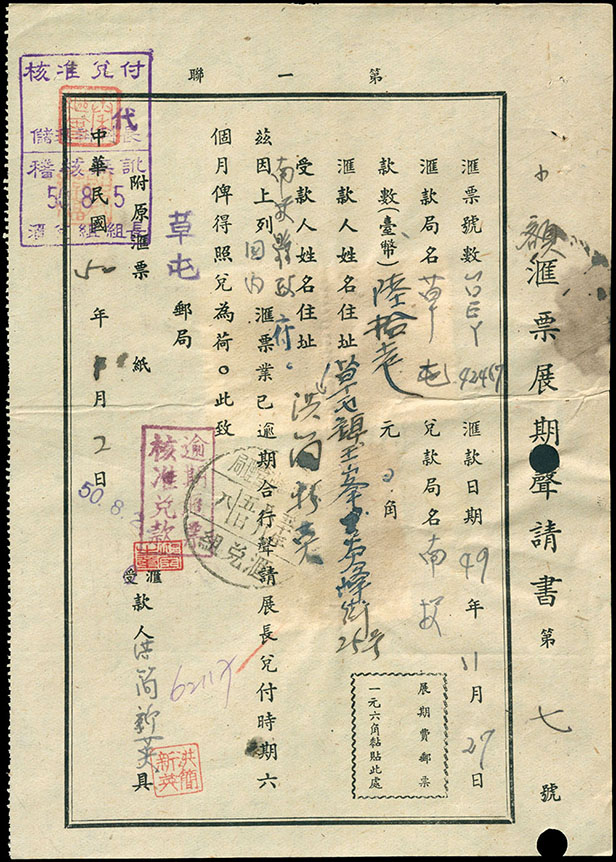 第一聯
小額滙票展期聲請書 第七號
滙票號數 42467 滙款日期49年11月29日
滙款局名草屯 兌款局名南投
款數(臺幣)陸拾 元 角
展期費郵票
一元六角黏貼此處
滙款人姓名住址 草屯鎮玉峯 街25号
洪簡新英
受款人姓名住址
南投縣政府。
茲因上列國內滙票業已逾期合行聲請展長兌付時期六
個月俾得照兌為荷。此致
草屯郵局
附原滙票 紙
滙
受款人洪簡新英具
洪簡新英
62117
中華民國50年 月2日
核准兌付
代
稽核
50.8.5
組長
逾期滙票
核准兌款
50.8.
滙兌組